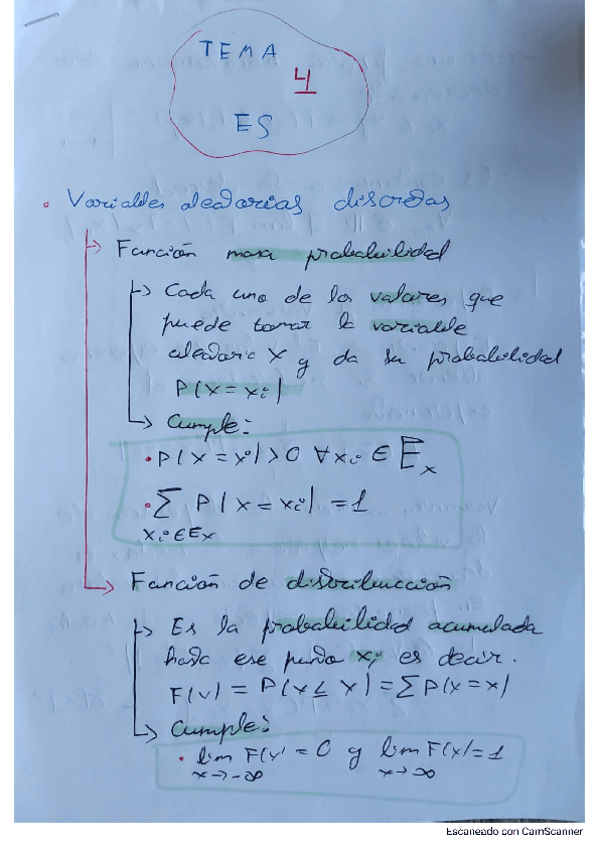 TEMA
4
ES
• Variables aleatorias discretas
→ Función masa probabilidad
→ Cada uno de los valores que
puede tomar la variable
aleatoria X y da su probabilidad
P(X = xi)
→ Cumple:
• P(X = xi) > 0 ∀xi ∈ Ex
• ∑ P(X = xi) = 1
xi ∈ Ex
→ Función de distribucción
→ Es la probabilidad acumulada
hasta ese punto xi es decir.
F(x) = P(X ≤ x) = ∑P(X = x)
→ Cumple:
• lim F(x) = 0 y lim F(x) = 1
x→-∞ x→∞
Escaneado con CamScanner